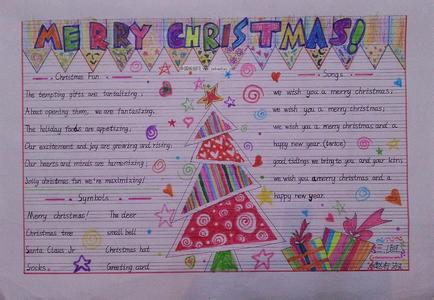 MERRY CHRISTMAS!
Christmas Fun
The tempting gifts are tantalizing;
About opening them, we are fantasizing,
The holiday foods are appetizing;
Our excitement and joy are growing and rising;
Our hearts and minds are harmonizing;
Jolly christmas fun we're maximizing!
Symbols
Merry christmas! The deer
Christmas tree small bell
Santa Claus Jr Christmas hat
Socks, Greeting card
Songs
we wish you a merry christmas;
we wish you a merry christmas;
we wish you a merry christmas and a
happy new year. (twice)
good tidings we bring to you and your kins
we wish you a merry christmas and a
happy new year.